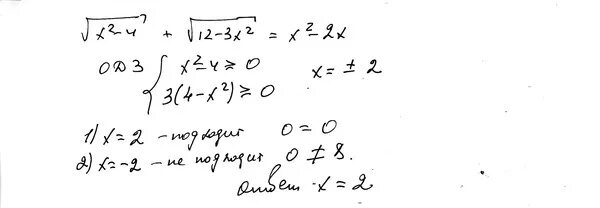 √(x²-4) + √(12-3x²) = x²-2x
ОДЗ { x²-4 ≥ 0   x = ± 2
3(4-x²) ≥ 0
1) x = 2 - подходит   0 = 0
2) x = -2 - не подходит   0 ≠ 8.
ответ x = 2